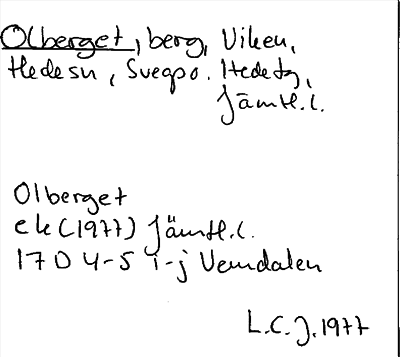 Olberget, berg, Viken,
Hedesn, Svegpo. Hedetg,
Jämtl.l.
Olberget
ek (1977) Jämtl.l.
17 D 4-5 i-j Vemdalen
L.C.J. 1977